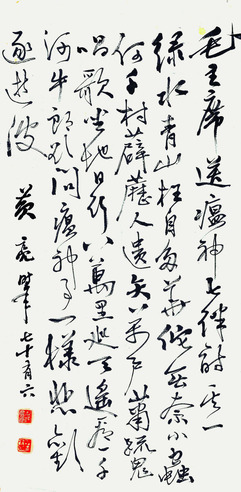 毛主席送瘟神七律詩其一
绿水青山枉自多華佗無奈小蟲
何千村薜荔人遺矢万户蕭疏鬼
唱歌坐地日行八萬里巡天遙看一千
河牛郎欲問瘟神事一樣悲歡
逐逝波
黄亮時年七十有六